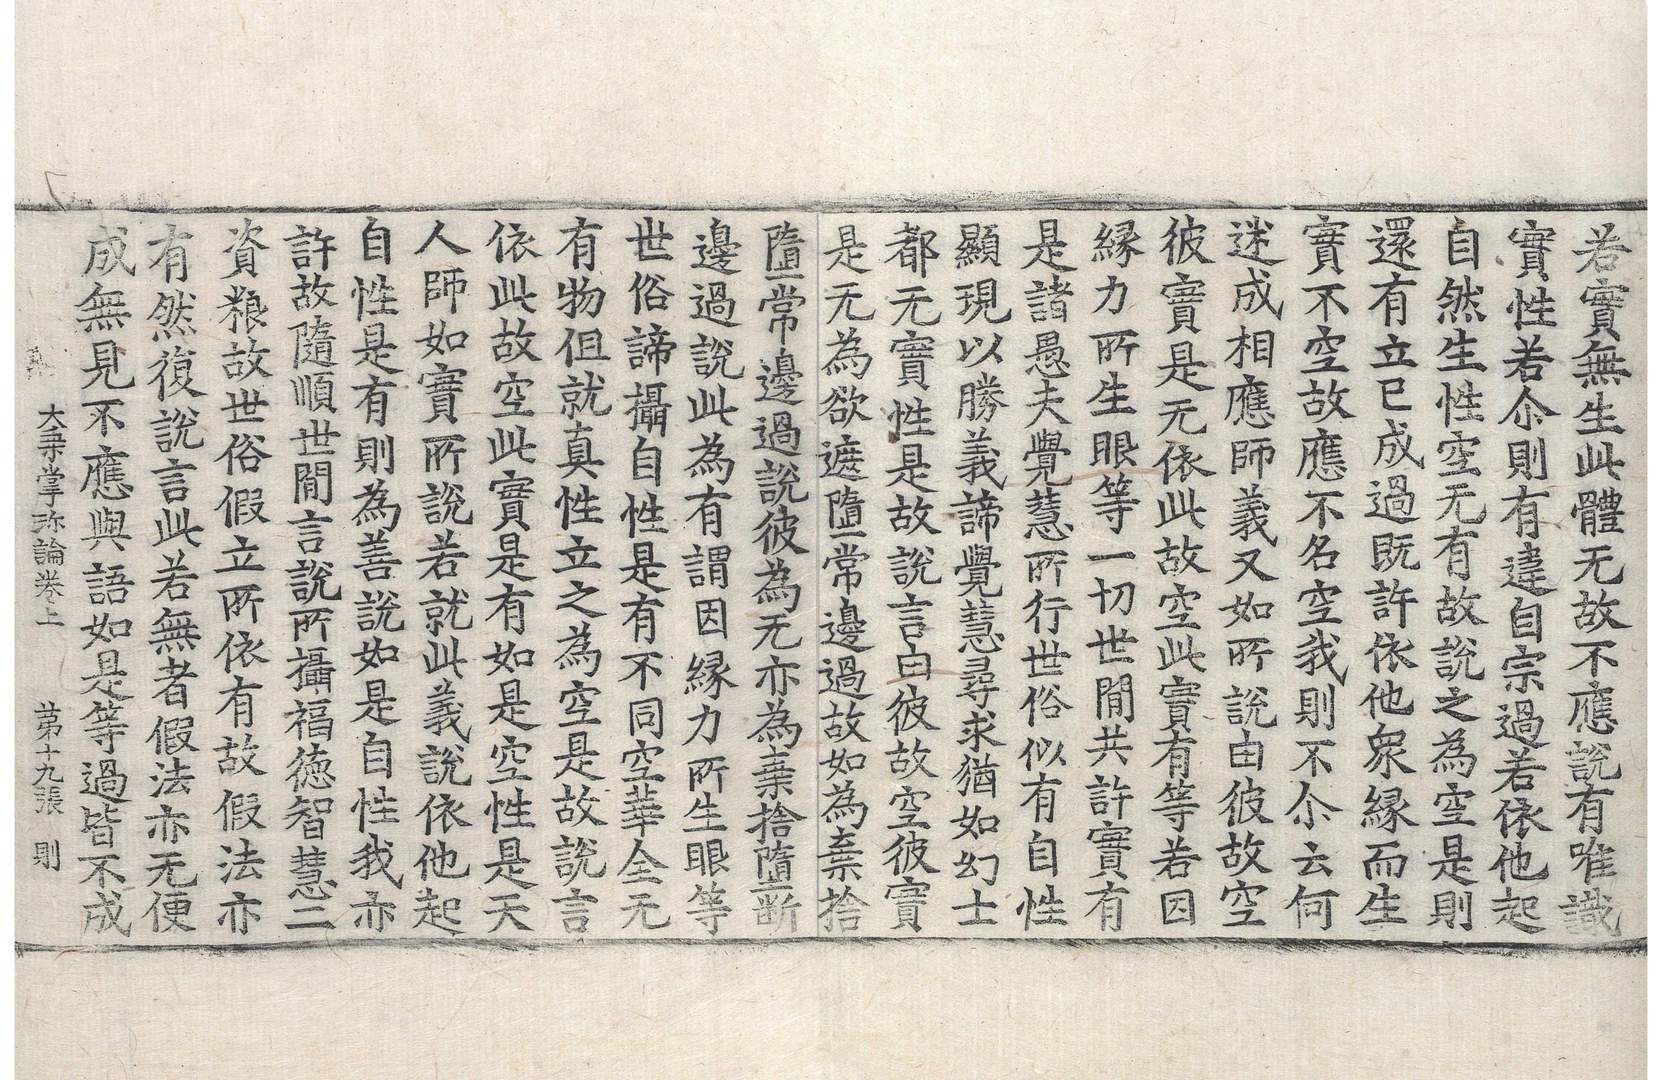 若實無生此體无故不應說有唯識
實性若尒則有違自宗過若依他起
自然生性空无有故說之為空是則
還有立已成過既許依他衆緣而生
實不空故應不名空我則不尒云何
迷成相應師義又如所說由彼故空
彼實是无依此故空此實有等若因
緣力所生眼等一切世間共許實有
是諸愚夫覺慧所行世俗似有自性
顯現以勝義諦覺慧尋求猶如幻士
都无實性是故說言由彼故空彼實
是无為欲遮墮常邊過故如為棄捨
墮常邊過說彼為无亦為棄捨墮斷
邊過說此為有謂因緣力所生眼等
世俗諦攝自性是有不同空華全无
有物但就真性立之為空是故說言
依此故空此實是有如是空性是天
人師如實所說若就此義說依他起
自性是有則為善說如是自性我亦
許故隨順世間言說所攝福德智慧二
資粮故世俗假立所依有故假法亦
有然復說言此若無者假法亦无便
成無見不應與語如是等過皆不成
大乗掌珎論卷上 第十九張 則